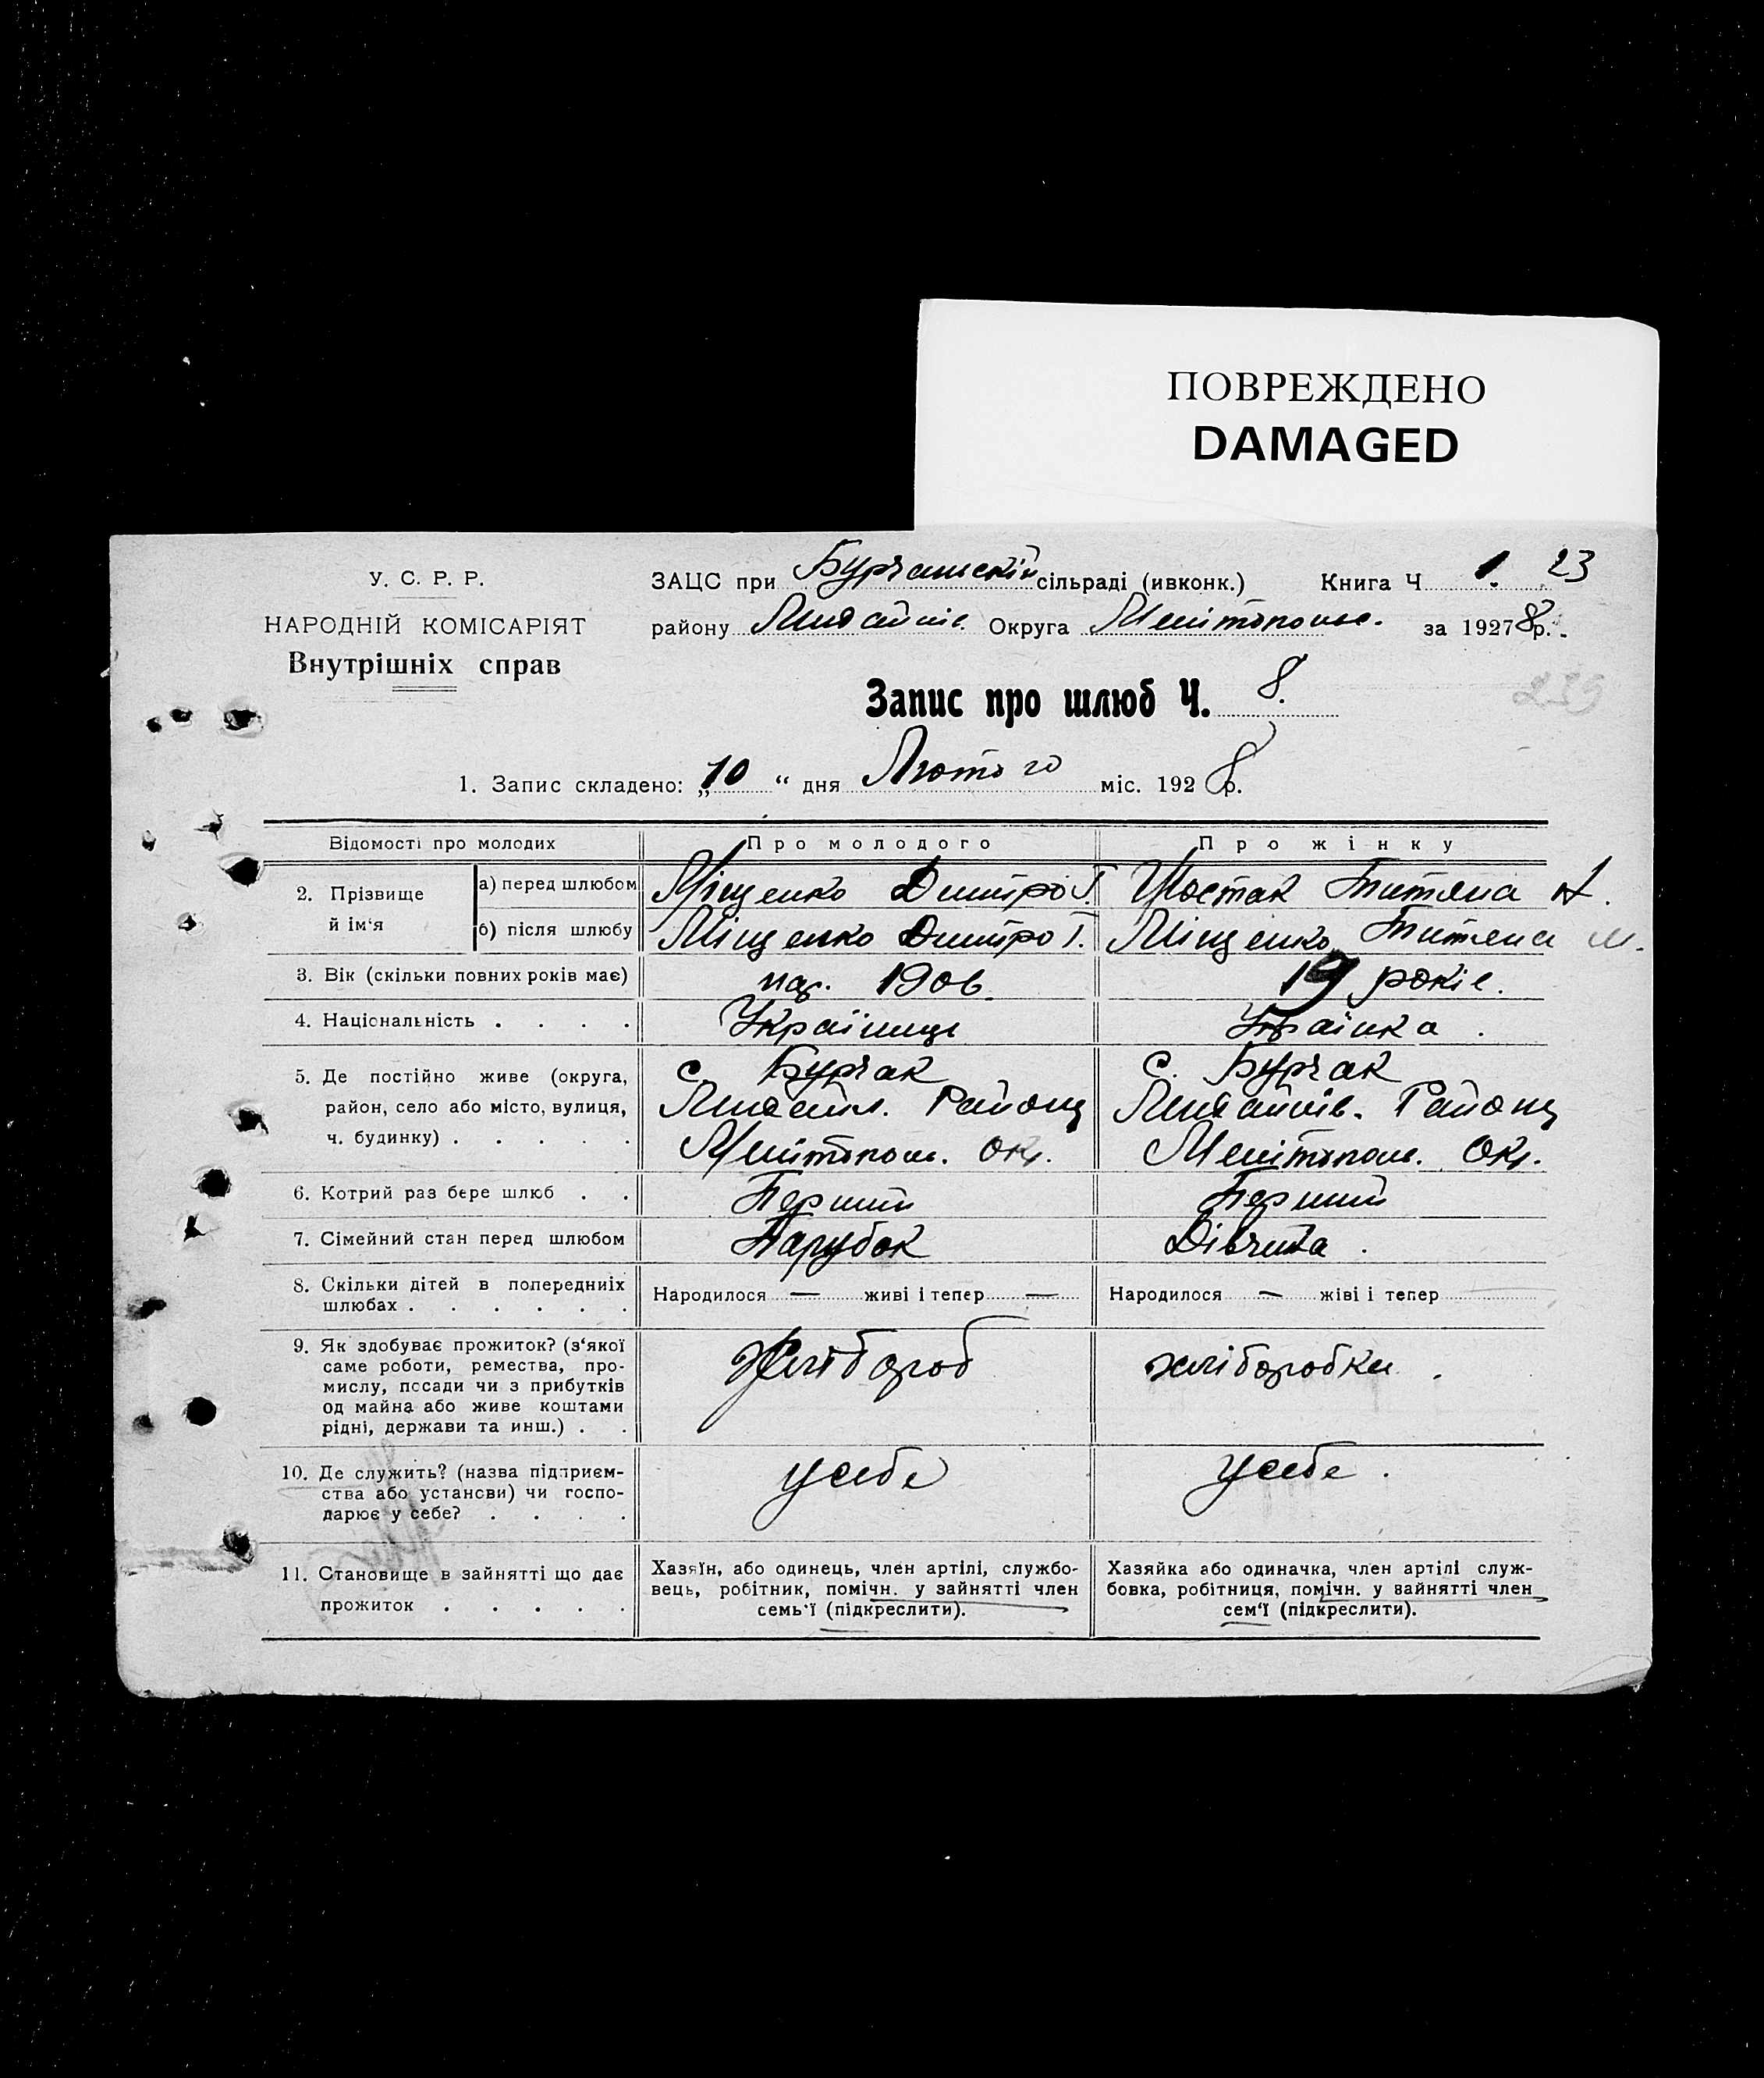 ПОВРЕЖДЕНО
DAMAGED
У. С. Р. Р.
НАРОДНІЙ КОМІСАРІЯТ
Внутрішніх справ
ЗАЦС при Бурчанській сільраді (ивконк.) Книга Ч 1. 23
району Округа Мелітопольс. за 1927 8 р.
Запис про шлюб Ч. 8.
239
1. Запис складено: „10“ дня Лютого міс. 1928 р.
Відомості про молодих Про молодого Про жінку
2. Прізвище й ім‘я
а) перед шлюбом Міщенко Дмитро Г. Шостак Титяна
б) після шлюбу Міщенко Дмитро Г. Міщенко Титяна М.
3. Вік (скільки повних років має) нар. 1906. 19 років.
4. Національність . . . . Українець Українка .
5. Де постійно живе (округа, с. Бурчак с. Бурчак
район, село або місто, вулиця, Михайл. Району Михайлів. Району
ч. будинку) . . . . . Мелітополь. Окр. Мелітополь. Окр.
6. Котрий раз бере шлюб . . Перший Перший
7. Сімейний стан перед шлюбом Парубок Дівчина .
8. Скільки дітей в попередниіх
шлюбах . . . . . .
Народилося — живі і тепер — Народилося — жіві і тепер
9. Як здобуває прожиток? (з‘якої
саме роботи, ремества, про-
мислу, посади чи з прибутків
од майна або живе коштами
рідні, держави та инш.) . .
Хлібороб хліборобка .
10. Де служить? (назва підприєм-
ства або установи) чи госпо-
дарює у себе? . . . .
у себе у себе .
11. Становище в зайнятті що дає
прожиток . . . . .
Хазяїн, або одинець, член артілі, службо-
вець, робітник, помічн. у зайнятті член
семь‘ї (підкреслити).
Хазяйка або одиначка, член артілі служ-
бовка, робітниця, помічн. у вайнятті член
сем‘ї (підкреслити).